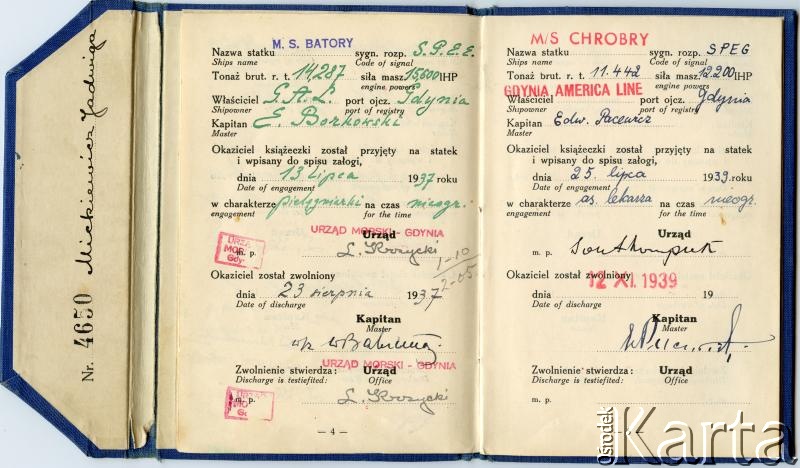 Nr. 4650 Mickiewicz Jadwiga
M. S. BATORY
Nazwa statku sygn. rozp. S.P.E.E.
Ships name Code of signal
Tonaż brut. r. t. 14,287 siła masz. 15,600 IHP
engine powers
Właściciel G.A.L. port ojcz. Gdynia
Shipowner port of registry
Kapitan E. Borkowski
Master
Okaziciel książeczki został przyjęty na statek
i wpisany do spisu załogi,
dnia 13 lipca 1937 roku
Date of engagement
w charakterze pielęgniarki na czas nieogr.
engagement for the time
URZĄD MORSKI - GDYNIA
Urząd
URZĄD
MOR
Gdy
m. p. L. Krzycki
1-10
2-05
Okaziciel został zwolniony
dnia 23 sierpnia 1937
Date of discharge
Kapitan
Master
URZĄD MORSKI - GDYNIA
Zwolnienie stwierdza: Urząd
Discharge is testiefited: Office
URZĄD
MO
G
m. p. L. Krzycki
— 4 —
M/S CHROBRY
Nazwa statku sygn. rozp. SPEG
Ships name Code of signal
Tonaż brut. r. t. 11.442 siła masz. 12.200 IHP
engine powers
GDYNIA AMERICA LINE
Właściciel port ojcz. Gdynia
Shipowner port of registry
Kapitan Edw. Pacewicz
Master
Okaziciel książeczki został przyjęty na statek
i wpisany do spisu załogi,
dnia 25 lipca 1939 roku
Date of engagement
w charakterze as. lekarza na czas nieogr.
engagement for the time
Urząd
m. p.
Okaziciel został zwolniony
12 XI. 1939
dnia 19
Date of discharge
Kapitan
Master
Zwolnienie stwierdza: Urząd
Discharge is testiefited: Office
m. p.
ośrodek Karta